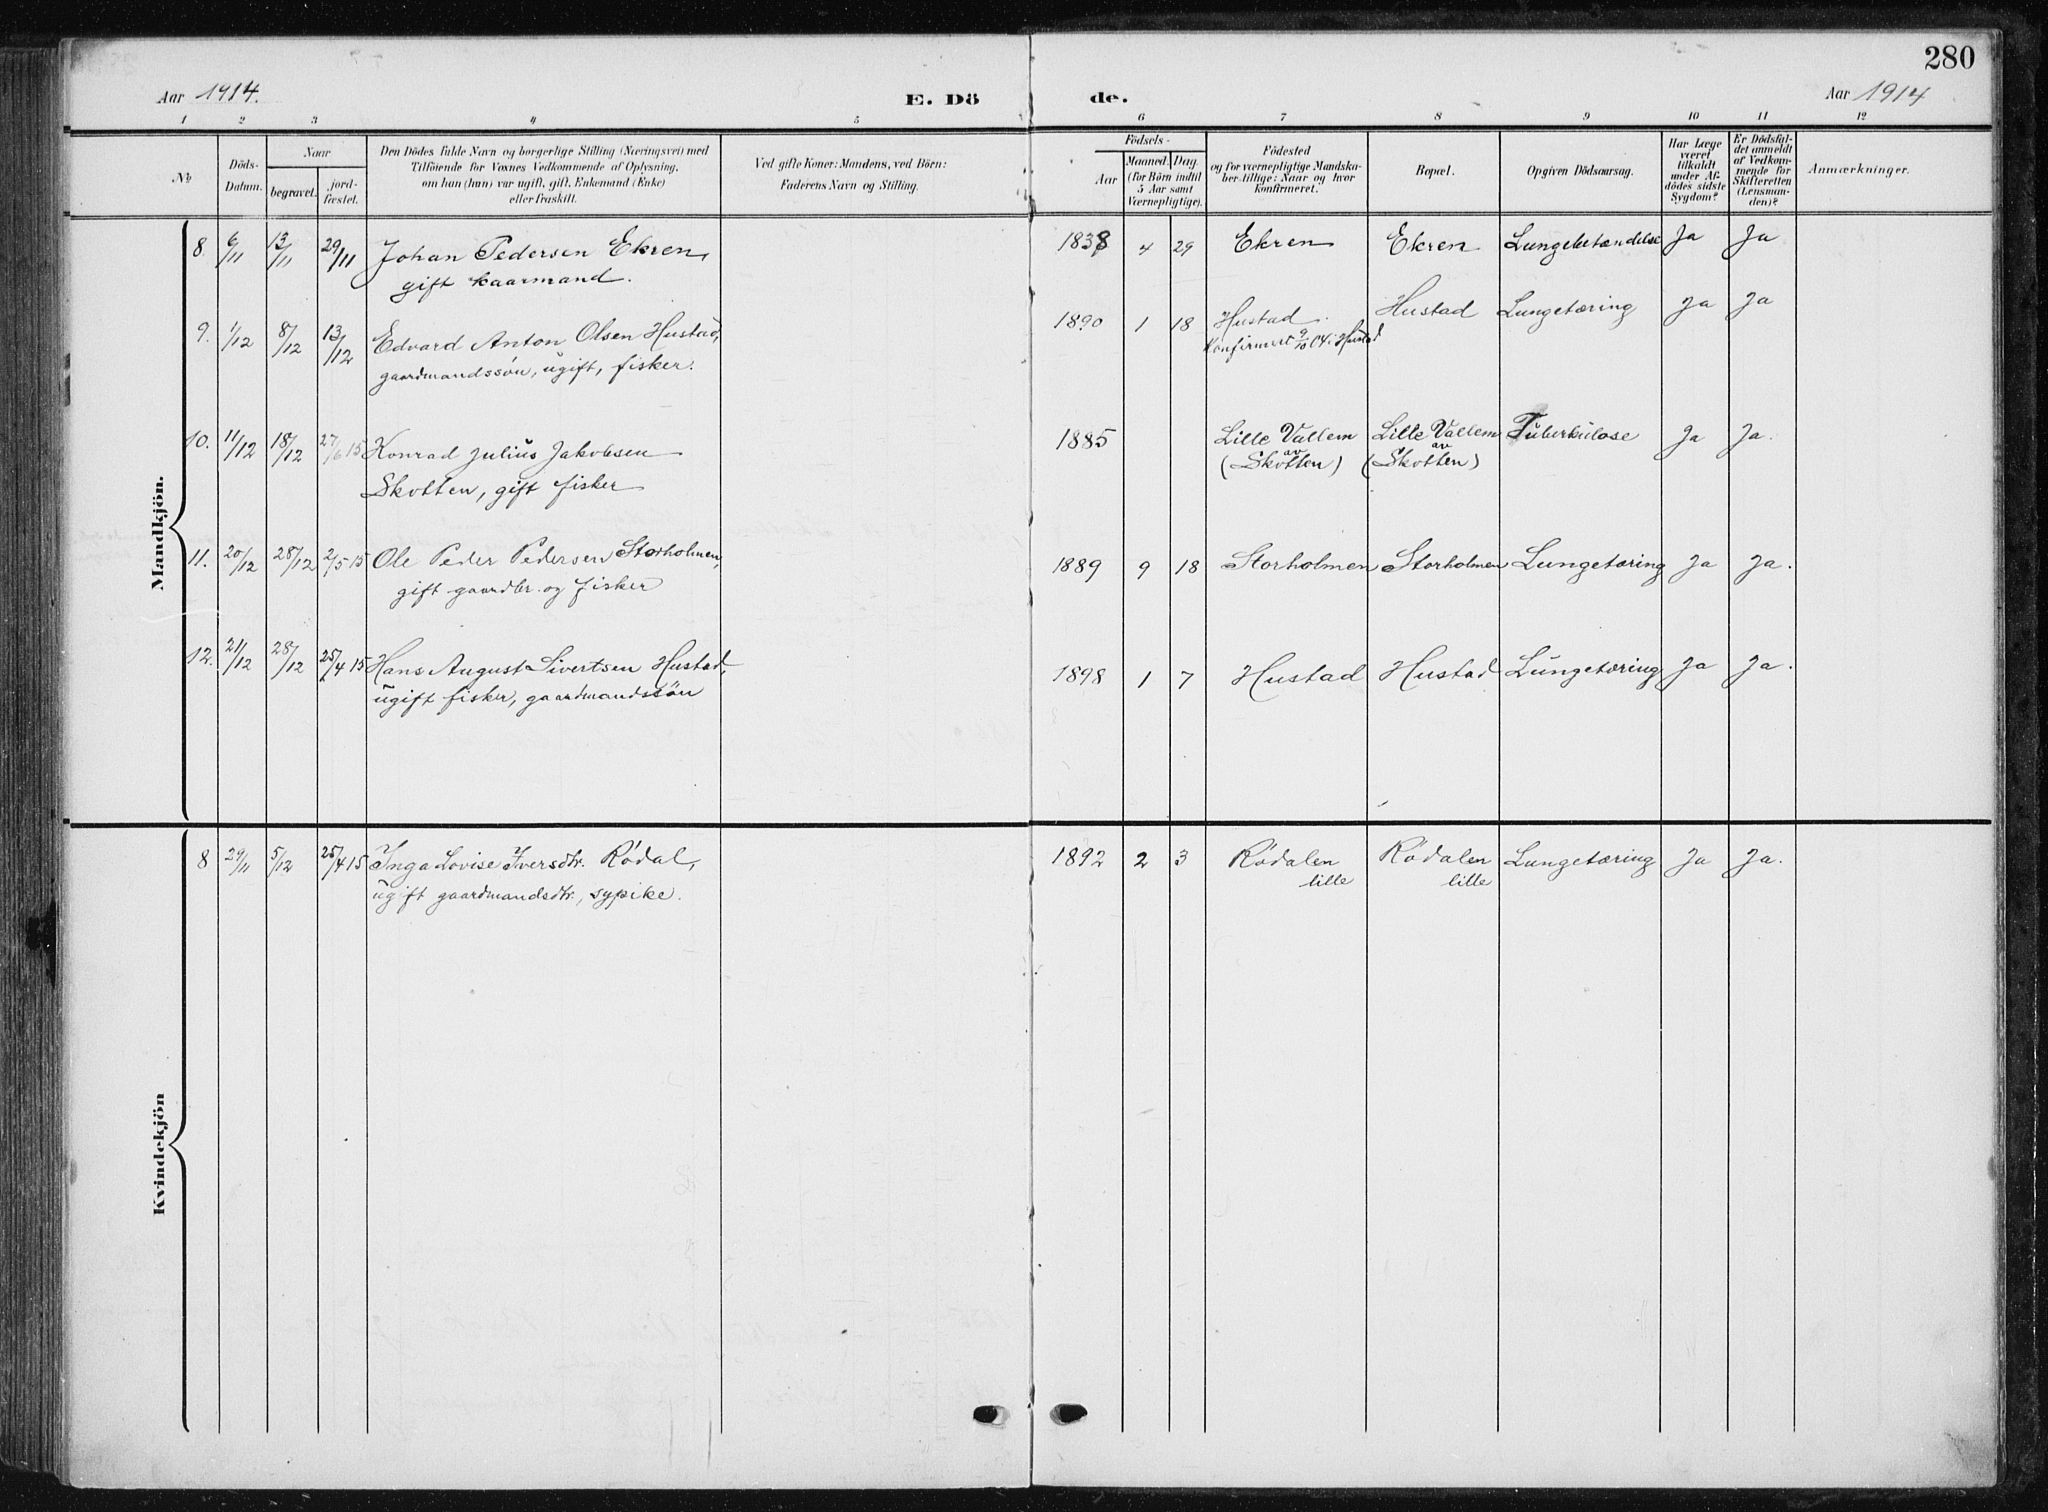 280
Aar 1914.
E. Dö de.
Aar 1914
1 2 3 4 5 6 7 8 9 10 11 12
No
Döds-Datum.
Naar
begravet.
jord-fæstet.
Den Dödes fulde Navn og borgerlige Stilling (Næringsvei) med
Tilföiende for Voxnes Vedkommende af Oplysning,
om han (hun) var ugift, gift, Enkemand (Enke)
eller fraskilt.
Ved gifte Koner: Mandens, ved Börn:
Faderens Navn og Stilling.
Födsels-
Aar
Maaned. Dag.
(for Börn indtil
5 Aar samt
Værnepligtige).
Födested
og for værnepligtige Mandska-
ber tillige: Naar og hvor
konfirmeret.
Bopæl.
Opgiven Dödsaarsag.
Har Læge
været
tilkaldt
under Af-
dödes sidste
Sygdom?
Er Dödsfal-
det anmeldt
af Vedkom-
mende for
Skifteretten
(Lensman-
den)?
Anmærkninger.
Mandkjön.
8. 6/11 13/11 29/11 Johan Pedersen Ekren, 1838 4 29 Ekren Ekren Lungebetændelse Ja Ja
gift kaarmand.
9. 1/12 8/12 13/12 Edvard Anton Olsen Hustad, 1890 1 18 Hustad. Hustad Lungetæring Ja Ja
Konfirmert 9/10 04 i Hustad
gaardmandssøn, ugift, fisker.
10. 11/12 18/12 27/6 15 Konrad Julius Jakobsen 1885 Lille Vallem Lille Vallem Tuberkulose Ja Ja.
av av
(Skotten) (Skotten)
Skotten, gift fisker
11. 20/12 28/12 2/5 15 Ole Peder Pedersen Storholmen, 1889 9 18 Storholmen Storholmen Lungetæring Ja Ja.
gift gaardbr. og fisker
12. 21/12 28/12 25/4 15 Hans August Sivertsen Hustad, 1898 1 7 Hustad Hustad Lungetæring Ja Ja.
ugift fisker, gaardmandssøn
Kvindekjön
8 29/11 5/12 25/4 15 Inga Lovise Iversdtr. Rødal, 1892 2 3 Rødalen Rødalen Lungetæring Ja Ja.
lille lille
ugift gaardmandsdtr., sypike.